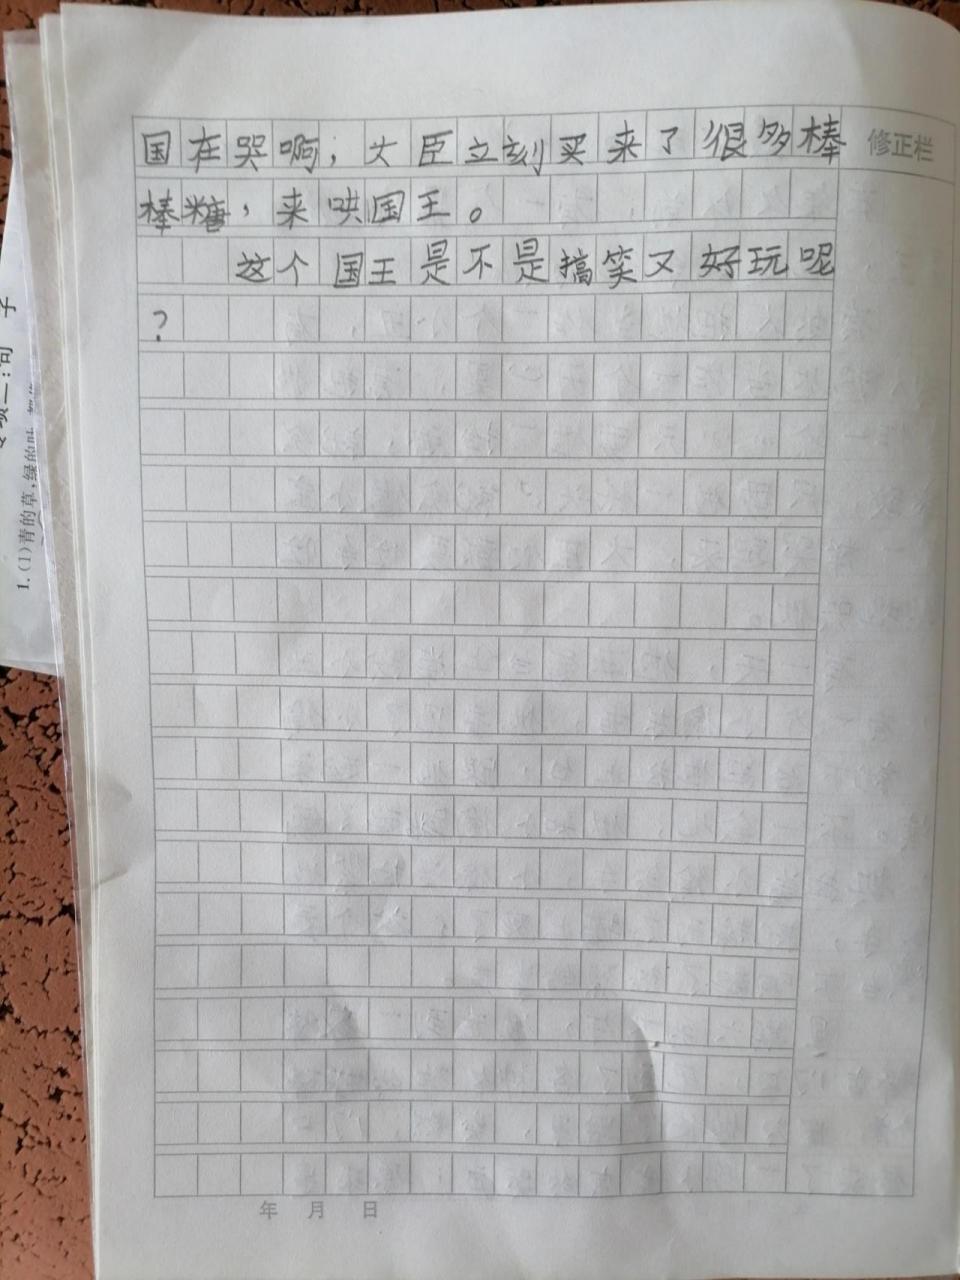 国在哭啊；大臣立刻买来了很多棒
修正栏
棒糖，来哄国王。
这个国王是不是搞笑又好玩呢
？
1.(1)青的草,绿的叶
年 月 日